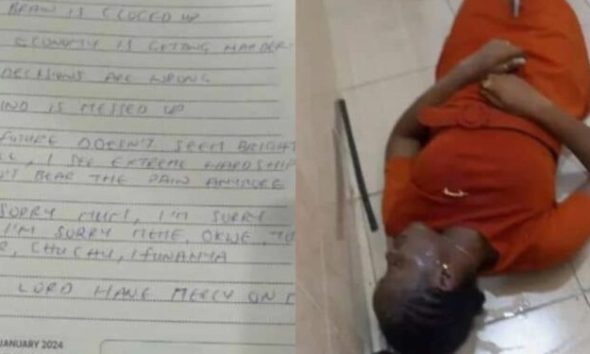 BRAIN IS CLOSED UP
ECONOMY IS GETTING HARDER
DECISIONS ARE WRONG
IND IS MESSED UP
FUTURE DOESN'T SEEM BRIGHT
, I SEE EXTREME HARDSHIP
'T BEAR THE PAIN ANYMORE
SORRY MUM, I'M SORRY
I'M SORRY MEME, OKWE,
, CHUCHU, IFUNANYA
LORD HAVE MERCY ON
JANUARY 2024